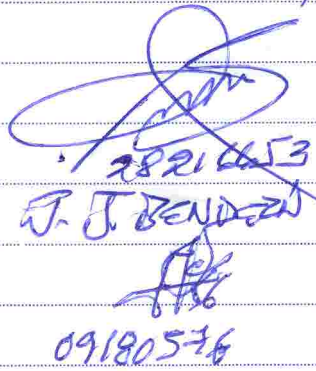 28216653
J. J BENDEZÚ
09180576